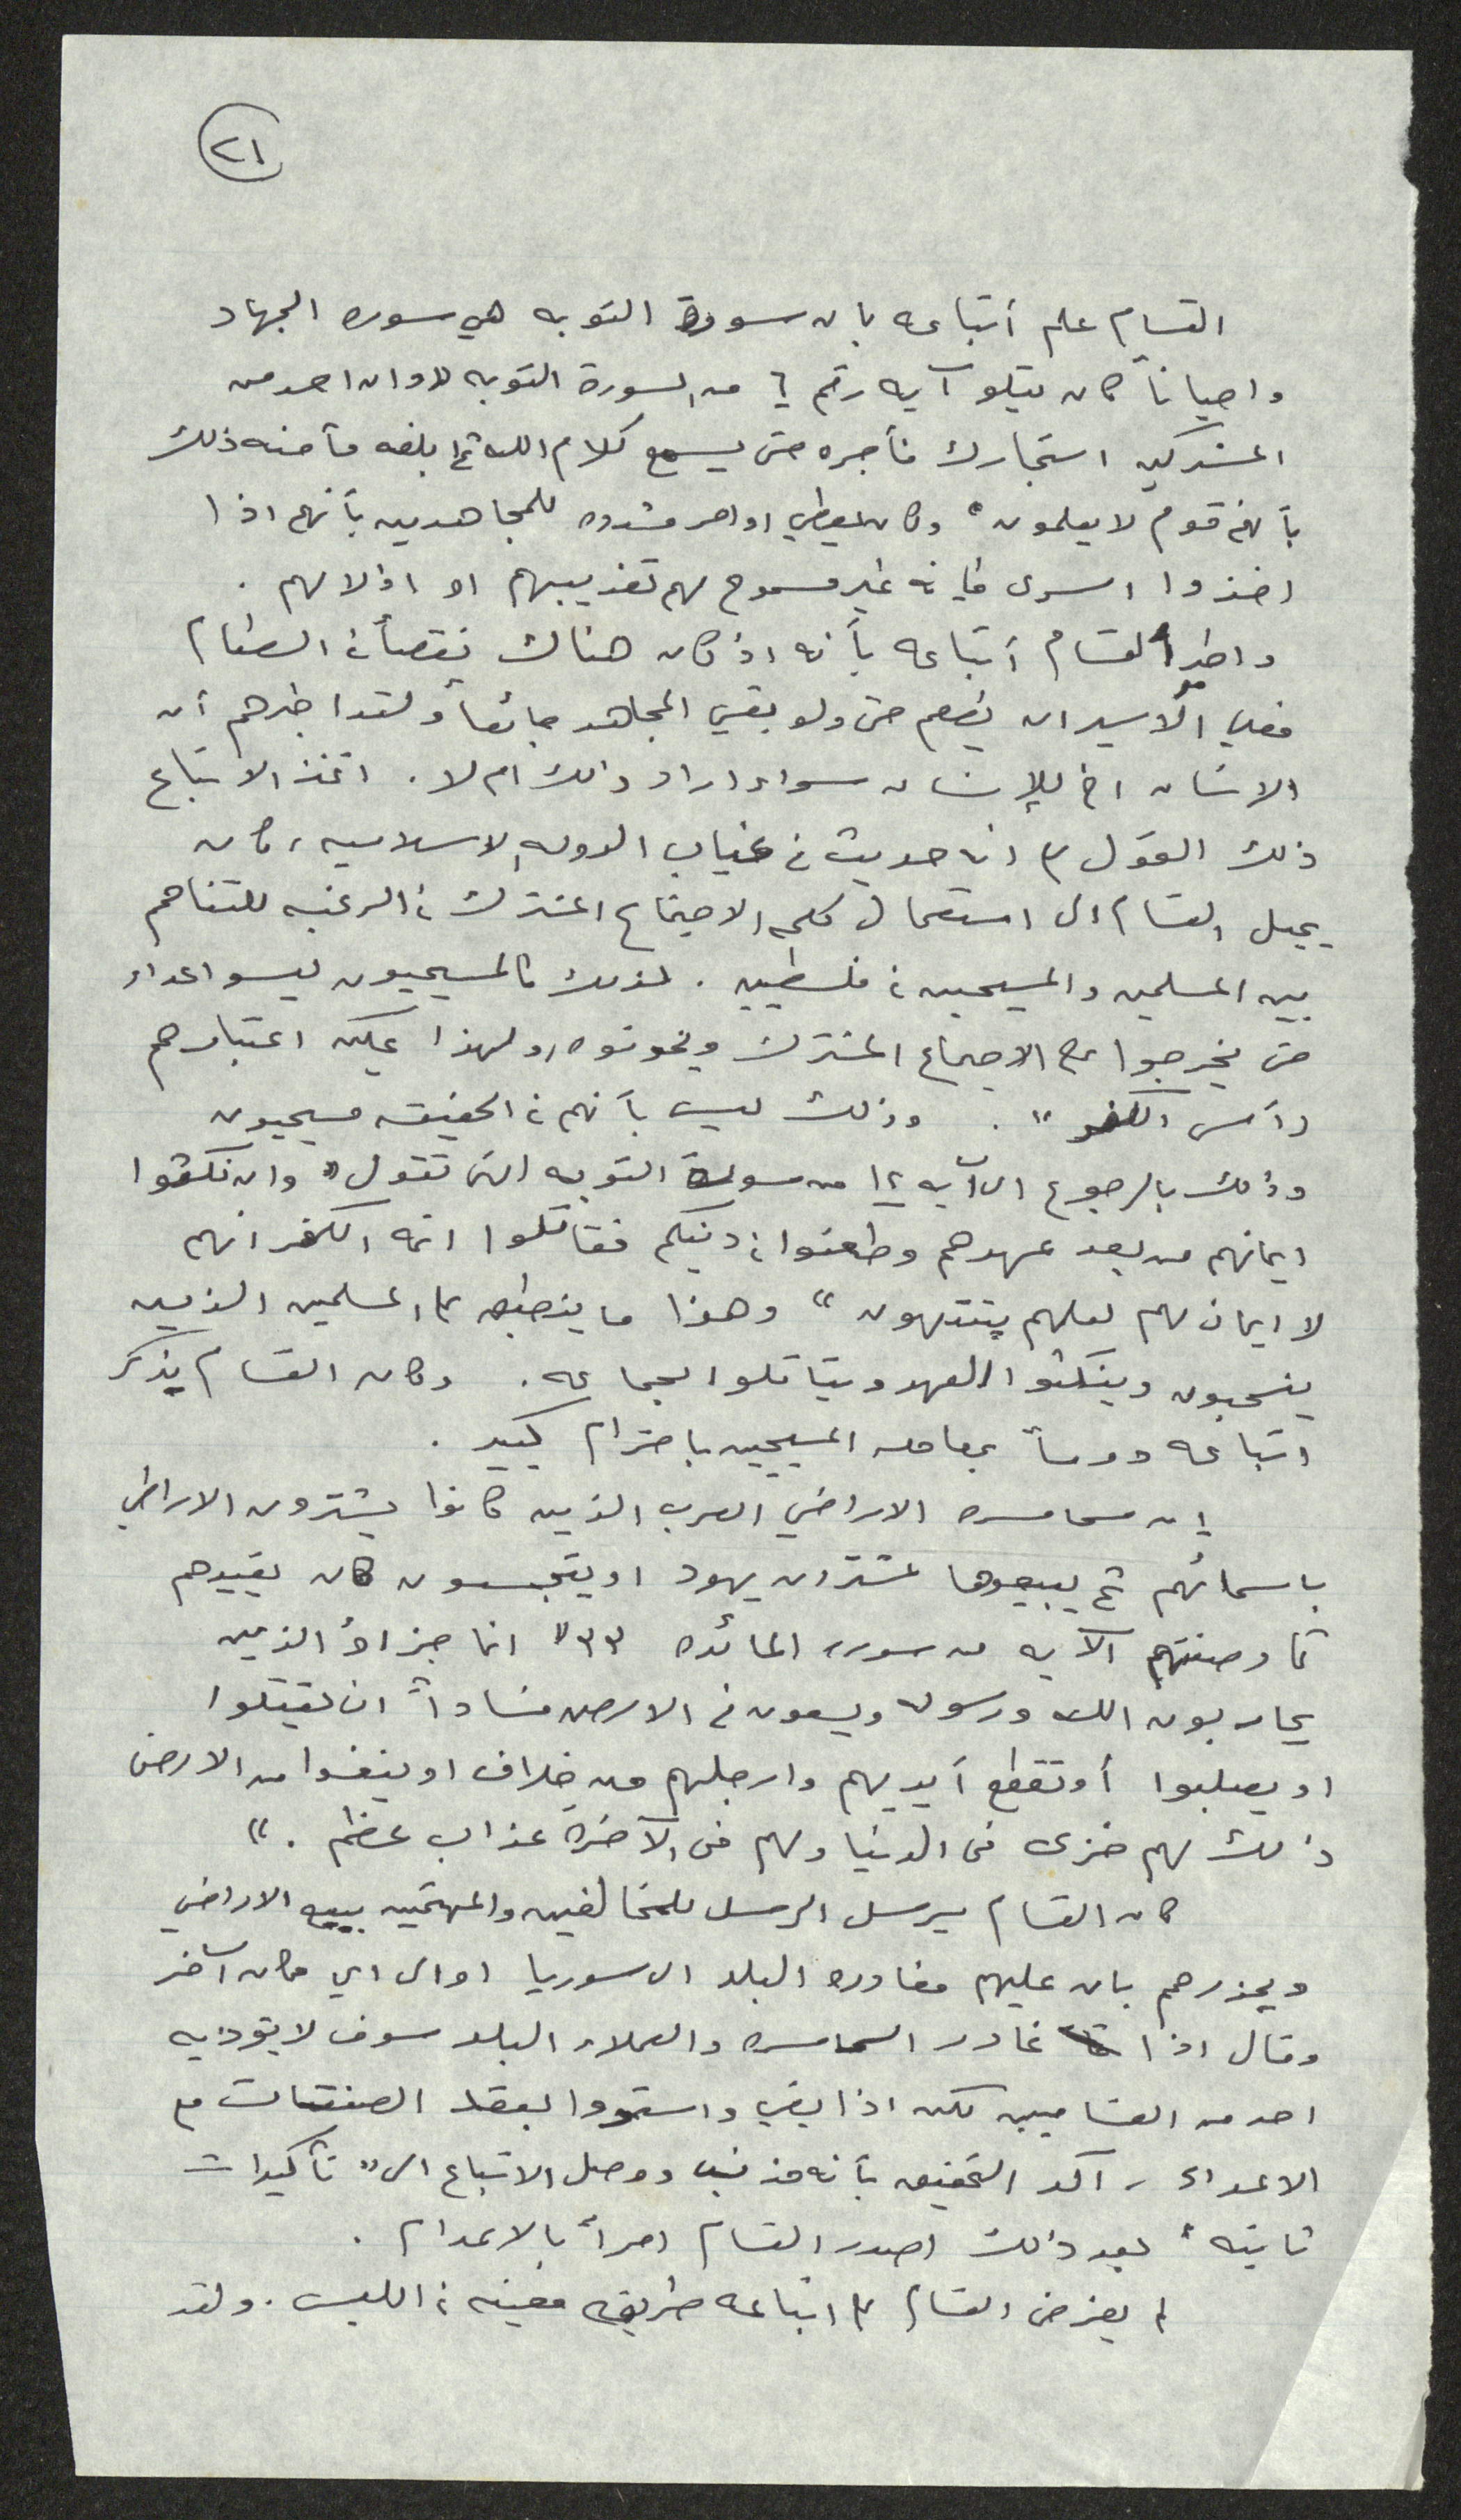 ٢١
القسام علم أتباعه بان سورة التوبه هي سوره الجهاد
واحياناً كان يتلو آيه رقم ٦ من السورة التوبه "وان احد من
المشركين استجارك فأجره حتى يسمع كلام الله ثم ابلغه مأمنه ذلك
بأنهم قوم لا يعلمون" وكان يعطي اوامر مشدده للمجاهدين بأنهم اذا
اخذوا اسرى فإنه غير مسموح لهم تعذيبهم او اذلالهم .
واخبر القسام أتباعه بأنه اذ كان هناك نقصاً في الطعام
فعلى الأسير ان يُطعم حتى ولو بقي المجاهد جائعاً ولقد اخبرهم أن
الانسان اخ للإنسان سواء اراد ذالك ام لا . اتخذ الاتباع
ذلك القول على انه حديث في غياب الدوله الاسلاميه ، كان
يميل القسام الى استعمال كلمه الاجتماع المشترك في الرغبه للتفاهم
بين المسلمين والمسيحين في فلسطين . لذلك فالمسيحيون ليسو اعداء
حتى يخرجوا عن الاجماع المشترك ويخونوه ، ولهذا يمكن اعتبارهم
رأس الكفر " . وذلك ليس بأنهم في الحقيقه مسيحيون
وذالك بالرجوع الى آيه ١٢ من سورة التوبه التى تقول " وان نكثوا
ايمانهم من بعد عهدهم وطعنوا في دينكم فقاتلوا ائمه الكفر انهم
لا ايمان لهم لعلهم ينتهون " وهذا ما ينطبق على المسلمين الذين
ينسحبون وينكثوا العهد ويقاتلوا الجماعه . وكان القسام يذكر
اتباعه دوماً بمعامله المسيحيين باحترام كبير .
إن سماسره الاراضي العرب الذين كانوا يشترون الاراضي
باسمائهم ثم يبيعوها لمشترين يهود او يتجسسون كان يقيدهم
كما وصفتهم الآيه من سوره المائده ٣٣ " انما جزاؤ الذين
يحاربون الله ورسوله ويسعون في الارض فساداً ان يقتلوا
او يصلبوا أو تقطع أيديهم وارجلهم من خلاف او ينفوا من الارض
ذلك لهم خزى فى الدنيا ولهم فى الآخرة عذاب عظيم . "
كان القسام يرسل الرسل للمخالفين والمهتمين ببيع الاراضي
ويحذرهم بان عليهم مغادره البلد الى سوريا او الى اي مكان آخر
وقال اذا غادر السماسره والعملاء البلد سوف لا يؤذيه
احد من القساميين لكن اذا بقي واستمروا بعقد الصفقات مع
الاعداء ، اكد التحقيق بأنه مذنب ووصل الاتباع الى " تأكيدات
ثابته " بعد ذلك اصدر القسام امراً بالاعدام .
لم يفرض القسام على اتباعه طريقه معينه في اللبس . ولقد